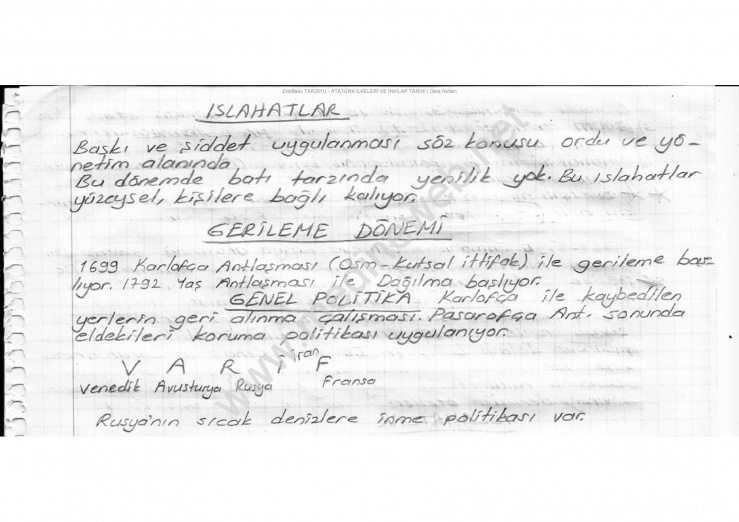 ErolBalcı TAR201U - ATATÜRK İLKELERİ VE İNKILAP TARİHİ I Ders Notları
ISLAHATLAR
Baskı ve şiddet uygulanması söz konusu ordu ve yö-
netim alanında
Bu dönemde batı tarzında yenilik yok. Bu ıslahatlar
yüzeysel, kişilere bağlı kalıyor.
GERİLEME DÖNEMİ
1699 Karlofça Antlaşması (Osm-Kutsal ittifak) ile gerileme baş-
lıyor. 1792 Yaş Antlaşması Dağılma başlıyor.
GENEL POLİTİKA Karlofça ile kaybedilen
yerlerin geri alınma çalışması. Pasarofça Ant. sonunda
eldekileri koruma politikası uygulanıyor.
V A R İ iran F
Venedik Avusturya Rusya Fransa
Rusya'nın sıcak denizlere inme politikası var.